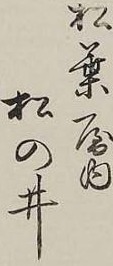 松葉屋内
松の井